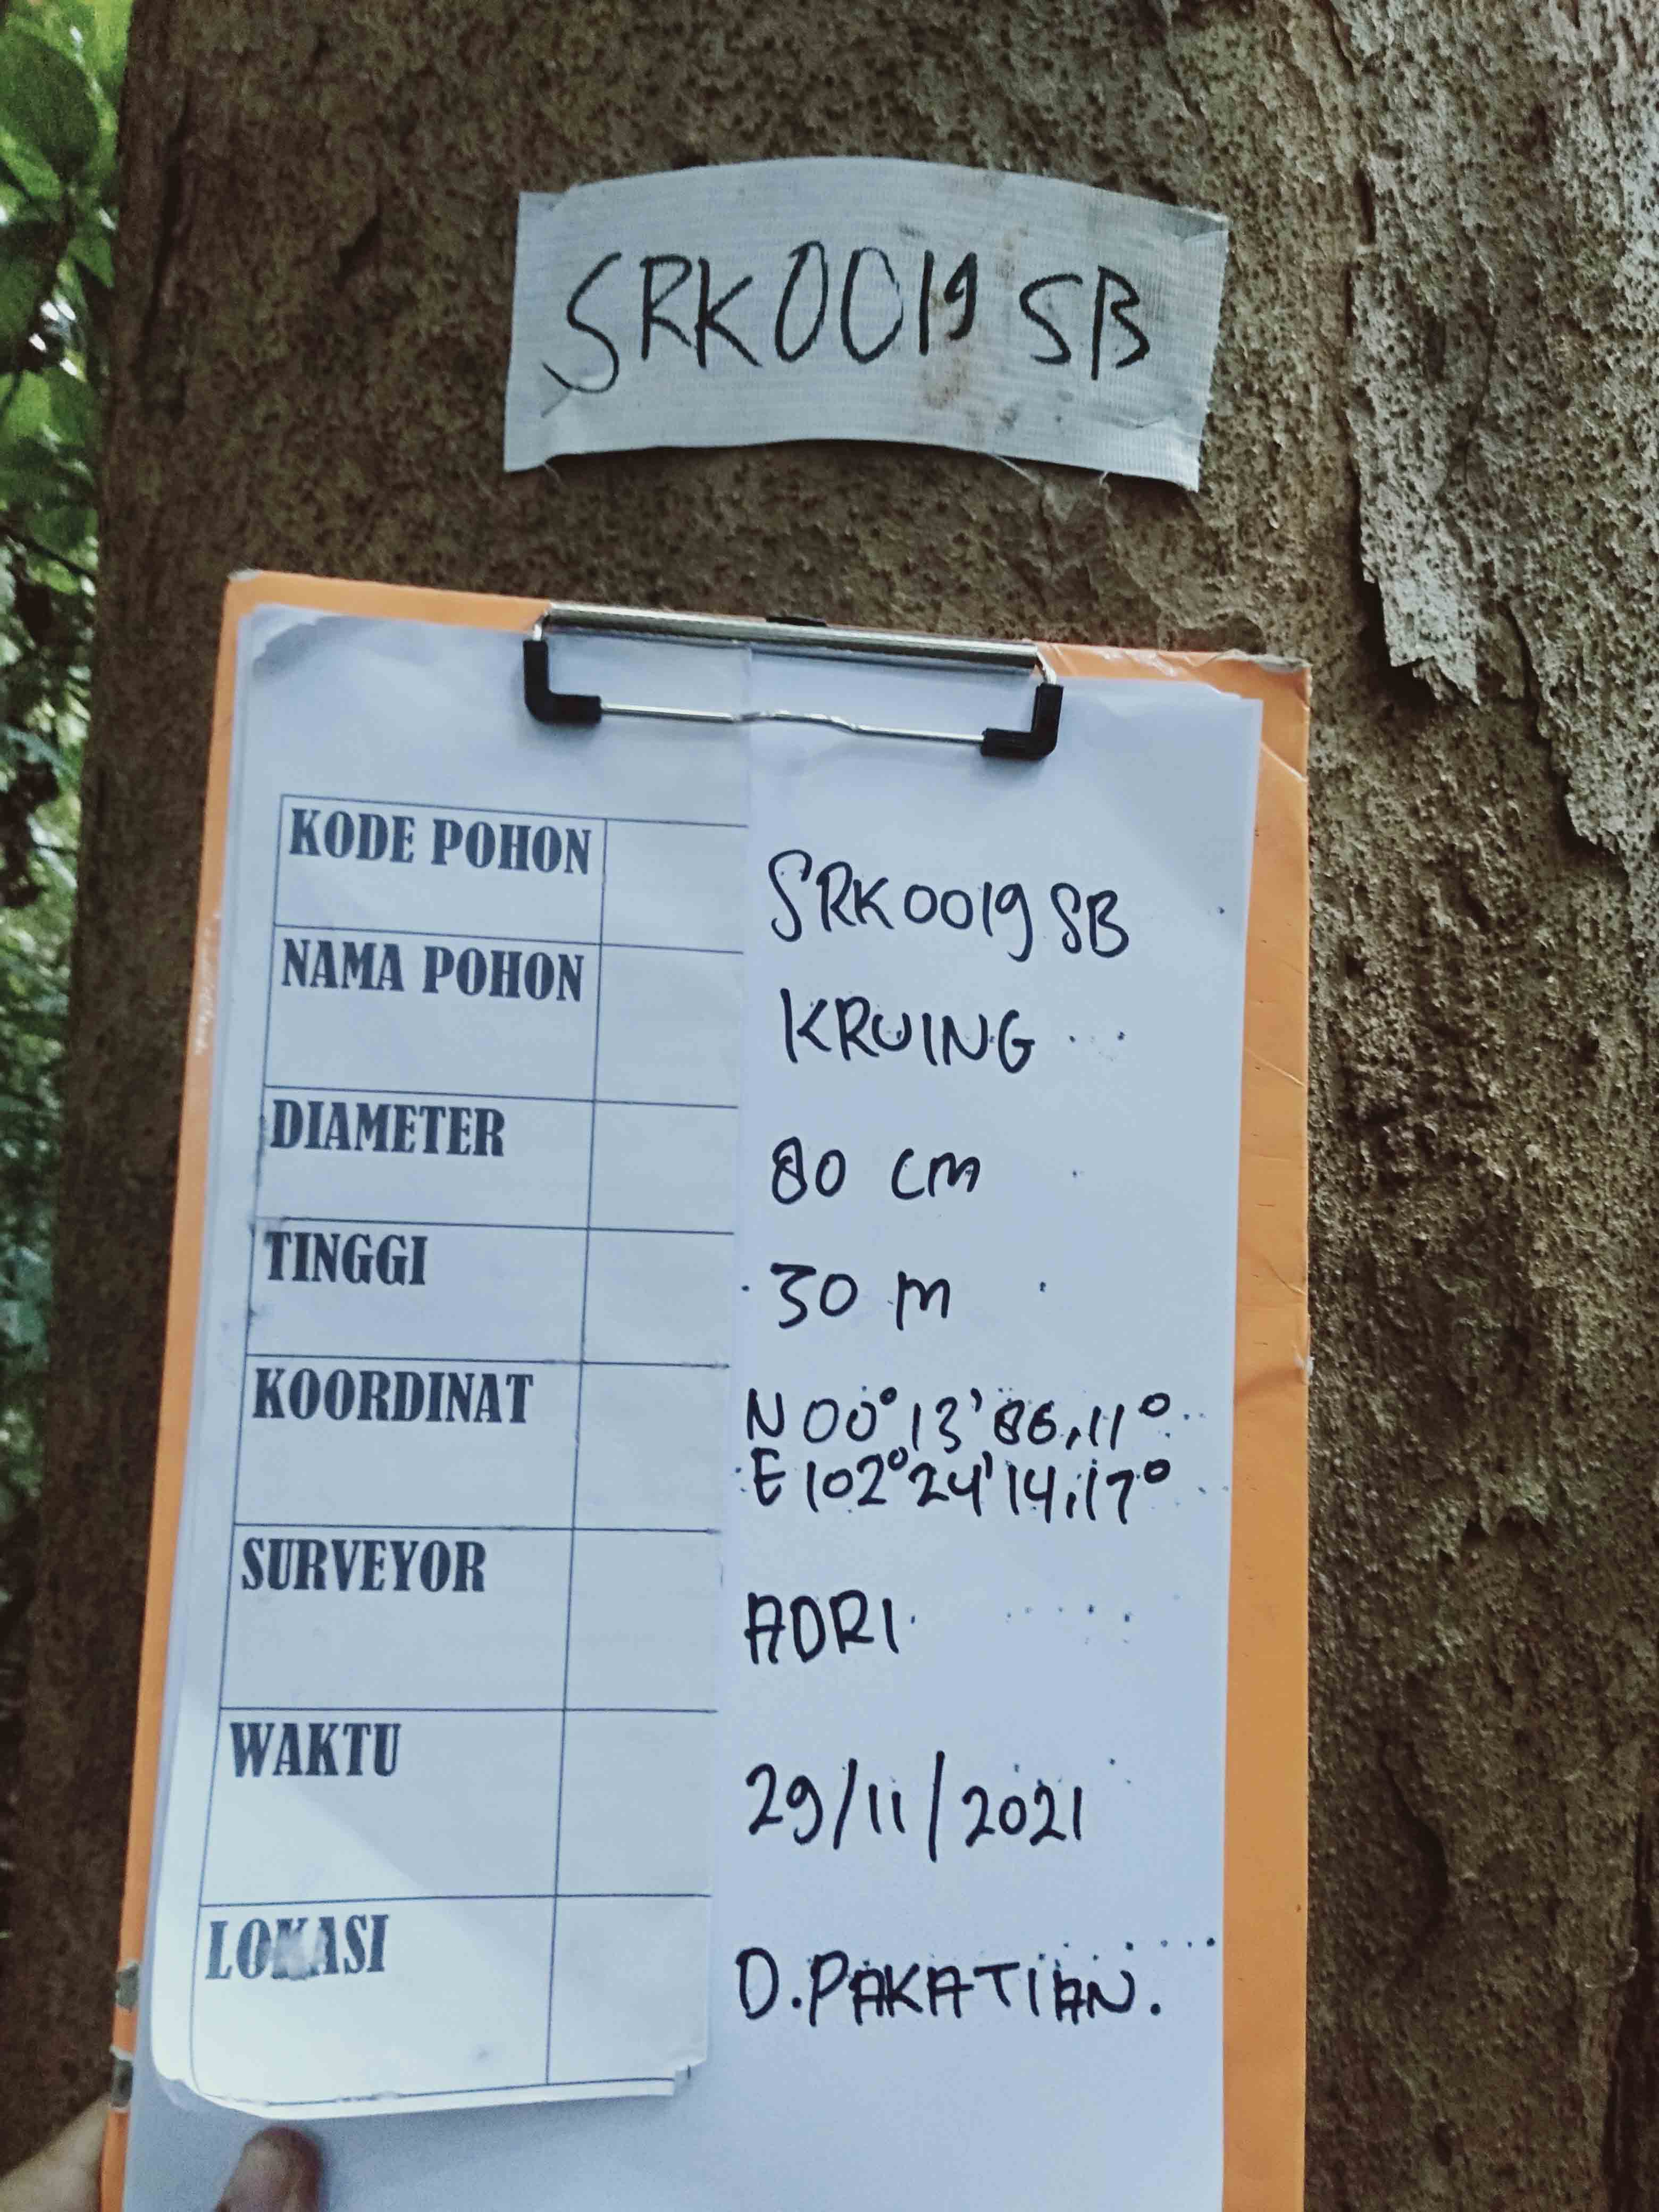 SRK0019 SB
KODE POHON SRK0019 SB
NAMA POHON KRUING
DIAMETER 80 cm
TINGGI 30 m
KOORDINAT N 00° 13' 86,11°
E 102° 24' 14,17°
SURVEYOR ADRI
WAKTU 29/11/2021
LOKASI D. PAKATIAN.